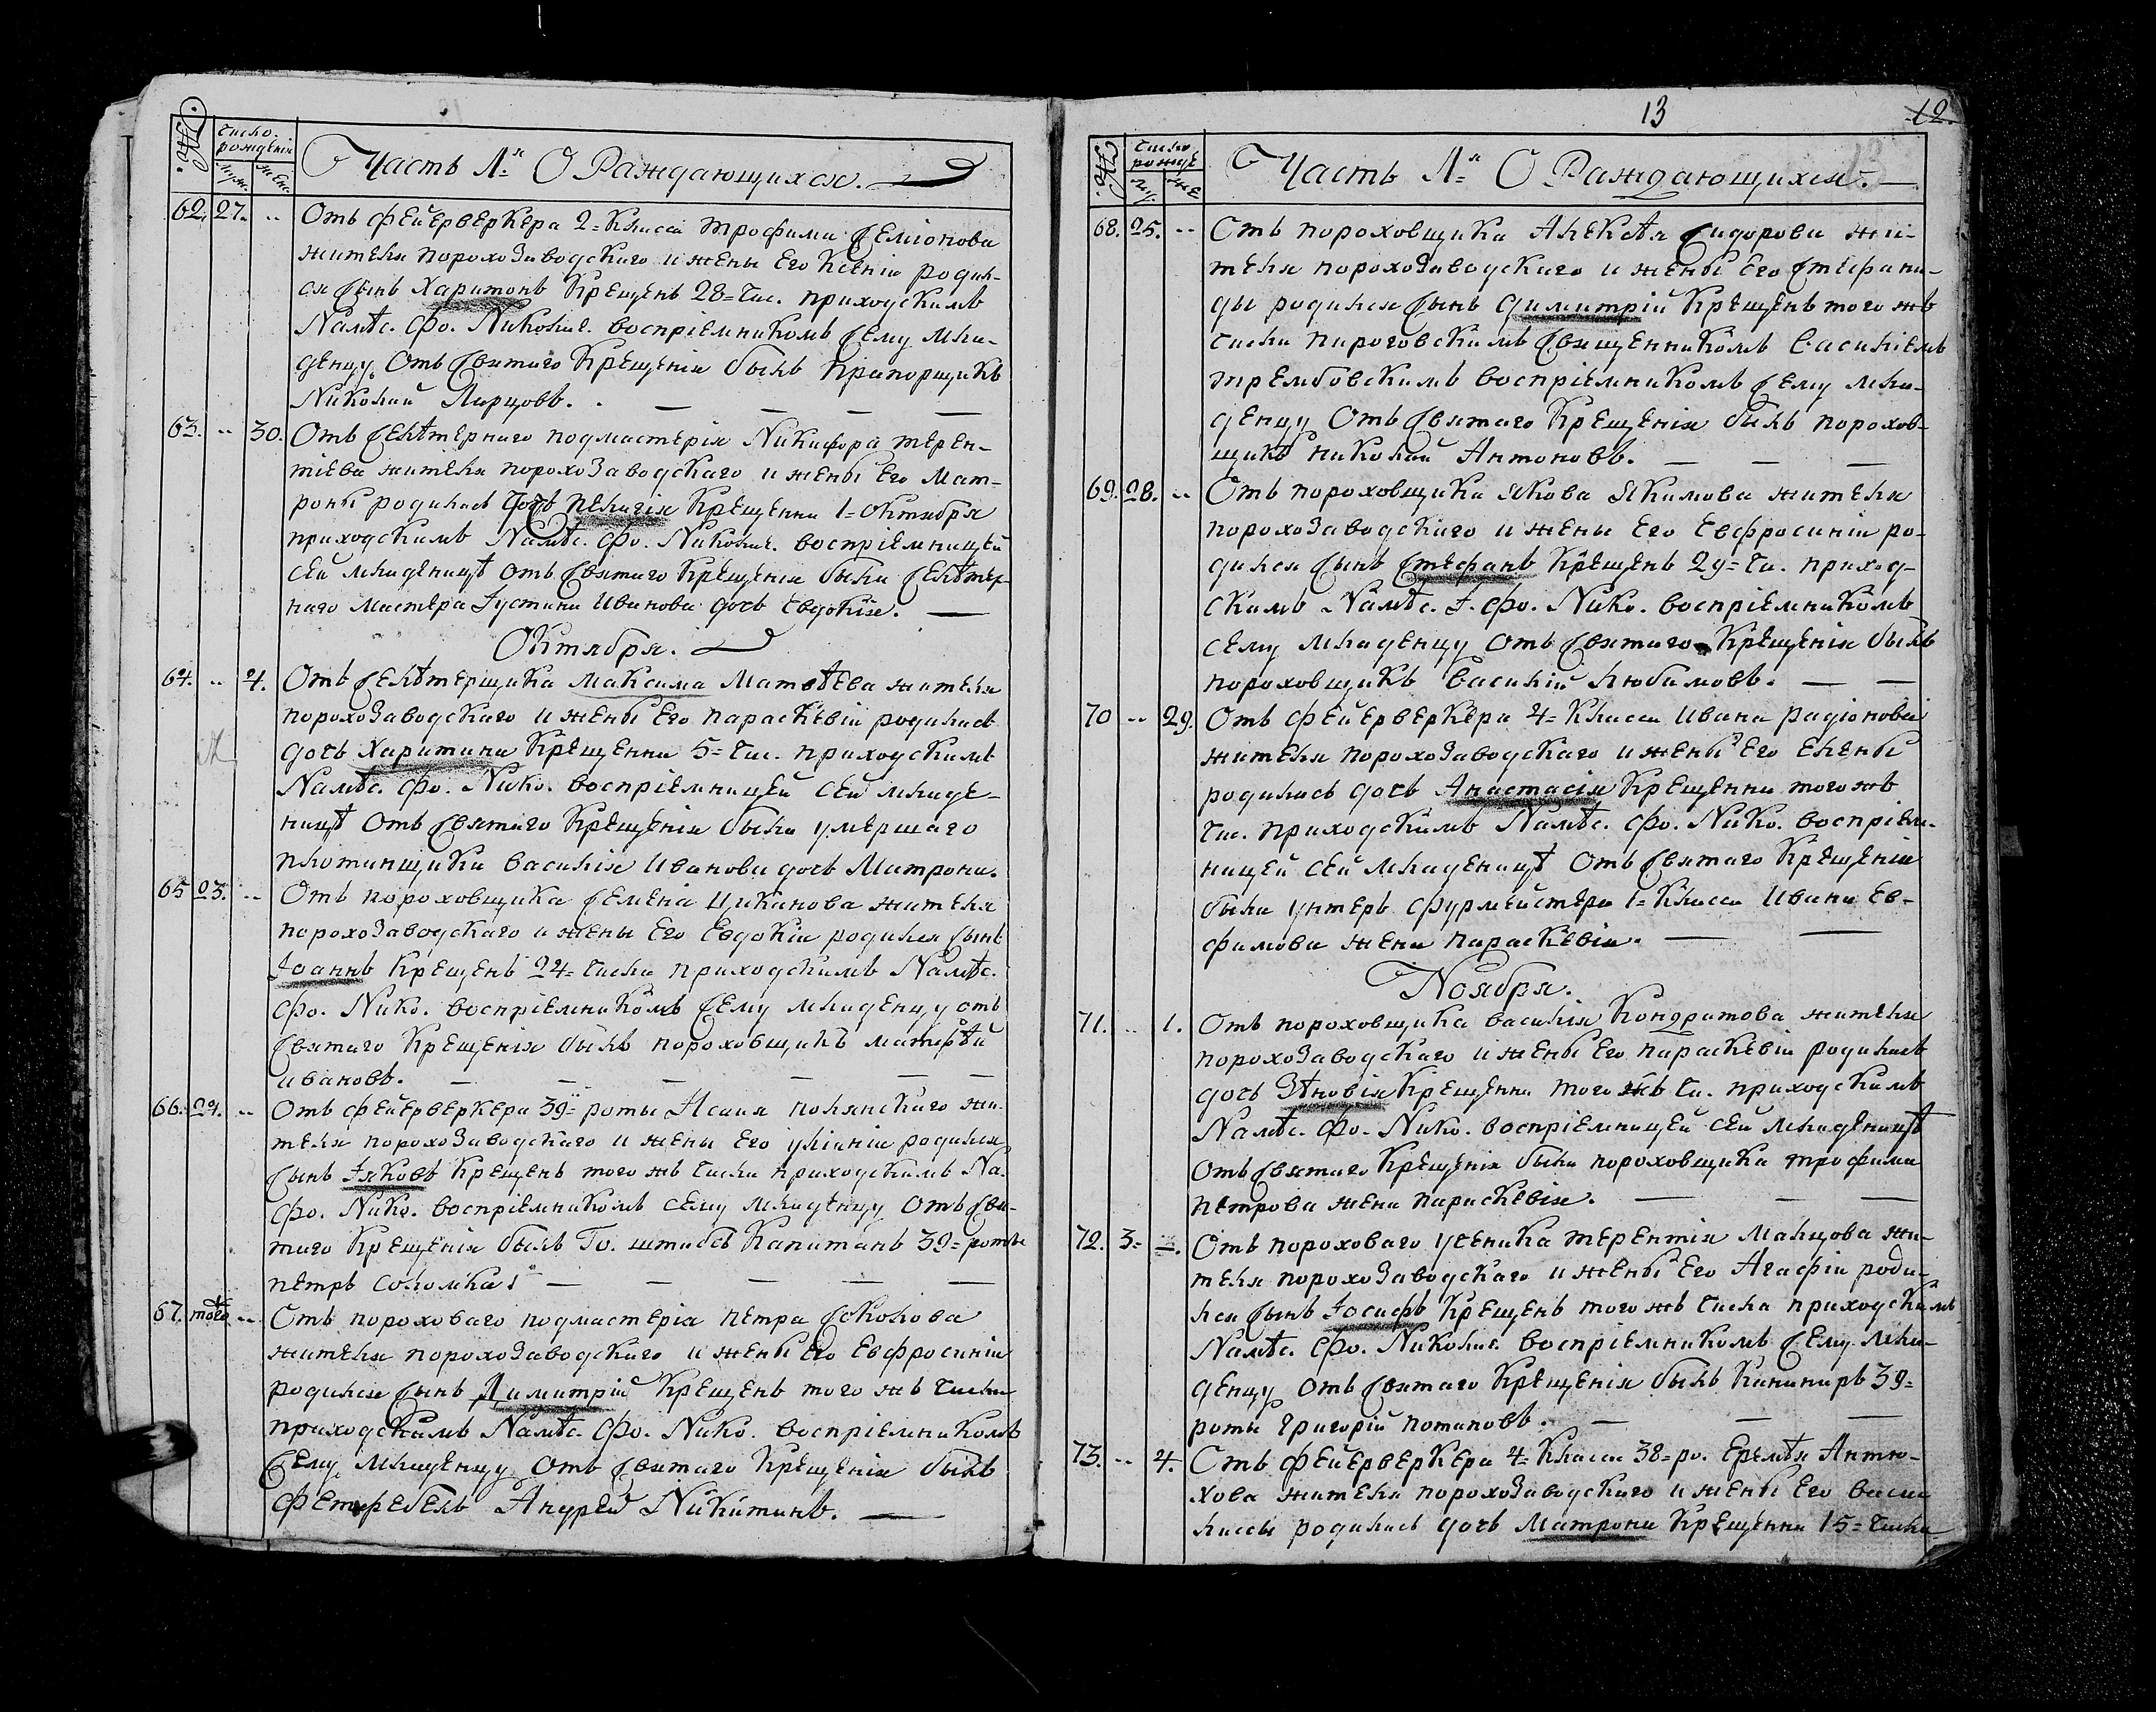 №.
Число.
рожденія
муж.
жен.
Часть 1я О Раждающихся.
62. 27. .. Отъ фейерверкера 2= класса трофима Семіонова
жителя порохозаводскаго и жены его ксеніи родил-
ся Сынъ Харитонъ Крещенъ 28= чис. приходскимъ
Намѣс. Фо. Николае. воспріемникомъ Сему мла-
денцу Отъ Святаго Крещенія былъ прапорщикъ
Николай Лирцовъ.
63. .. 30. Отъ Селѣтернаго подмастерія Никифора терен-
тіева жителя порохозаводскаго и жены Его Мат-
роны родилась дочь Пелагія Крещенна 1= октября
приходскимъ Намѣс. Фо. Николае. воспріемницей
сей младеницѣ отъ Святаго Крещенія была Селѣтер-
наго мастера Іустина Иванова дочь Евдокія.
Октября.
64. .. 4. Отъ Селѣтерщика Максима Матвѣева жителя
порохозаводскаго и жены Его параскевіи родилась
дочь Харитина Крещенна 5= чис. приходскимъ
Намѣс. Фо. Нико. воспріемницей сей младе-
ницѣ Отъ Святаго Крещенія была умершаго
плотинщика василія Иванова дочь Матрона.
65 23. .. Отъ пороховщика Семена Цыканова жителя
порохозаводскаго и жены Его Евдокіи родился сынъ
Іоаннъ Крещенъ 24= числа приходскимъ Намѣс.
Фо. Нико. воспріемникомъ Сему младенцу отъ
Святаго Крещенія былъ пороховщикъ матвѣй
ивановъ.
66. 24. .. Отъ фейерверкера 39= роты Исаія полянскаго жи-
теля порохозаводскаго и жены Его уліаніи родился
Сынъ Іяковъ Крещенъ того жъ числа приходскимъ На.
Фо. Нико. воспріемникомъ сему младенцу Отъ Свя-
таго Крещенія былъ Го. штабсъ Капитанъ 39= роты
петръ соломка
67. того .. Отъ пороховаго подмастерія петра Соколова
жителя порохозаводскаго и жены Его Евфросиніи
родился Сынъ Димитрій Крещенъ того жъ числа
приходскимъ Намѣс. Фо. Нико. воспріемникомъ
Сему младенцу Отъ Святаго Крещенія былъ
фетфебель Андрей Никитинъ.
13
12.
№.
Число
рожде
му.
же
Часть 1я О Раждающихся.
68. 25. .. Отъ пороховщика Алексѣя Сидорова жи-
теля порохозаводскаго и жены Его Стефани-
ды родился Сынъ Димитрій Крещенъ того жъ
числа пироговскимъ Священникомъ Василіемъ
трембовскимъ воспріемникомъ Сему мла-
денцу Отъ Святаго Крещенія былъ порохов-
щикъ николай Антоновъ.
69. 28. .. Отъ пороховщика Якова Якимова жителя
порохозаводскаго и жены Его Евфросиніи ро-
дился Сынъ Стефанъ Крещенъ 29= чи. приход-
скимъ Намѣс. І. Фо. Нико. воспріемникомъ
сему младенцу Отъ Святаго Крещенія былъ
пороховщикъ Василій Любимовъ.
70 .. 29. Отъ фейерверкера 4= класса Ивана радіонова
жителя порохозаводскаго и жены Его елены
родилась дочь Анастасія Крещенна того жъ
чис. приходскимъ Намѣс. Фо. Нико. воспріем-
ницей сей младеницѣ Отъ Святаго Крещенія
была унтеръ фурмейстера 1= класса Ивана Ев-
фимова жена параскевія.
Ноября.
71. .. 1. Отъ пороховщика василія Кондратова жителя
порохозаводскаго и жены Его параскевіи родилась
дочь Зѣновія Крещенна того жъ чи. приходскимъ
Намѣс. Фо. Нико. воспріемницей сей младеницѣ
Отъ Святаго Крещенія была пороховщика трофима
петрова жена параскевія.
72. 3= .. Отъ пороховаго ученика терентія Малцова жи-
теля порохозаводскаго и жены Его Агафіи роди-
лся Сынъ Іосифъ Крещенъ того жъ числа приходскимъ
Намѣс. Фо. Николае. воспріемникомъ Сему мла-
денцу Отъ Святаго Крещенія былъ Канониръ 39=
роты Григорій потаповъ.
73. .. 4. Отъ фейерверкера 4= класса 38= ро. Еремѣя Антю-
хова жителя порохозаводскаго и жены Его васи
лиссы родилась дочь Матрона Крещенна 15= числа